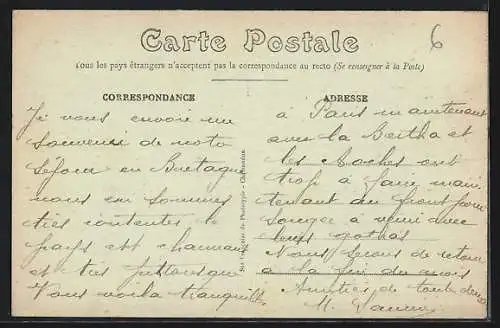 Carte Postale
6
Tous les pays étrangers n'acceptent pas la correspondance au recto (Se renseigner à la Poste)
CORRESPONDANCE
Je vous envoie un
souvenir de notre
séjour en Bretagne
nous en sommes
très contentes le
pays est charmant
et très pittoresque
Vous voila tranquille
ADRESSE
à Paris maintenant
avec la Bertha et
les Boches ont
trop à faire main
tenant au front pour
songer à venir avec
leurs gothas
Nous serons de retour
à la fin du mois
Amitiés de toute
M.